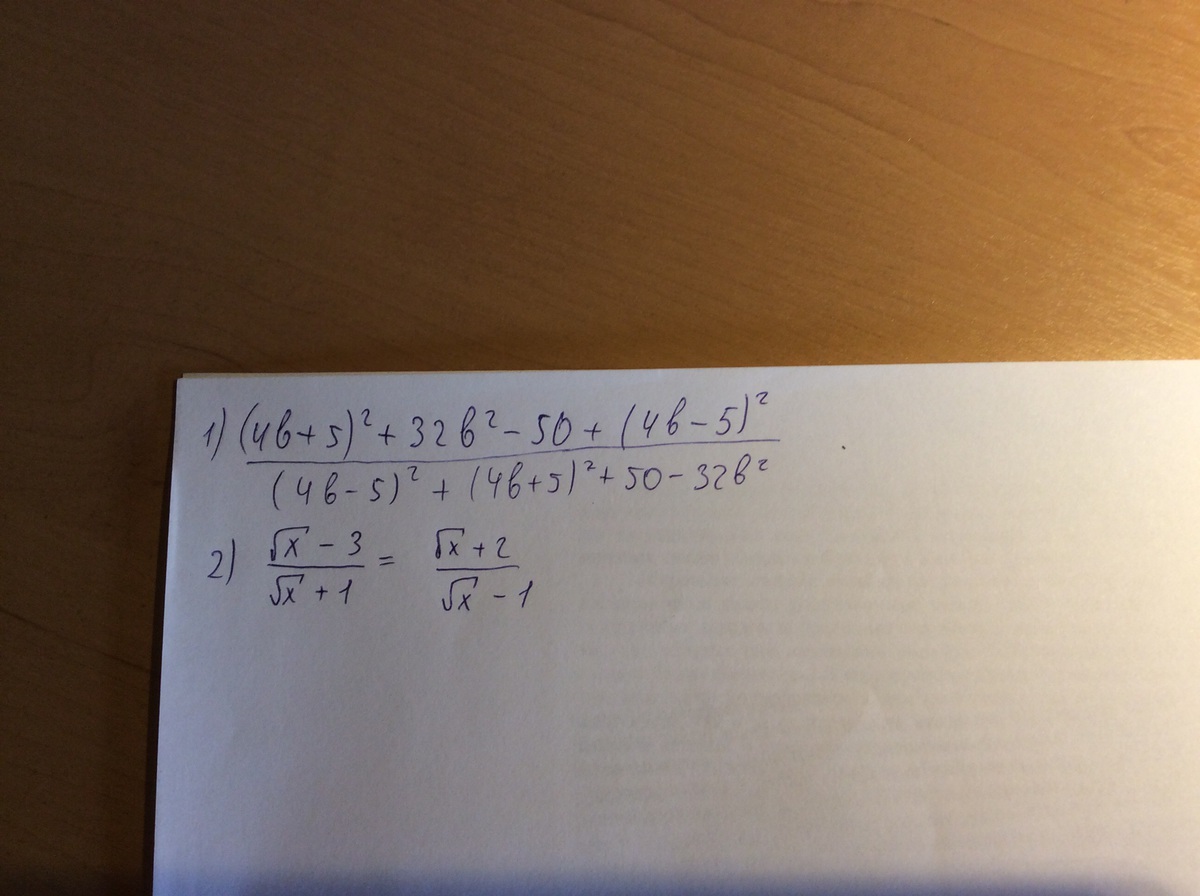 1) (4b+5)²+32b²-50+(4b-5)²
(4b-5)²+(4b+5)²+50-32b²
2) √x-3 = √x+2
√x+1 √x-1